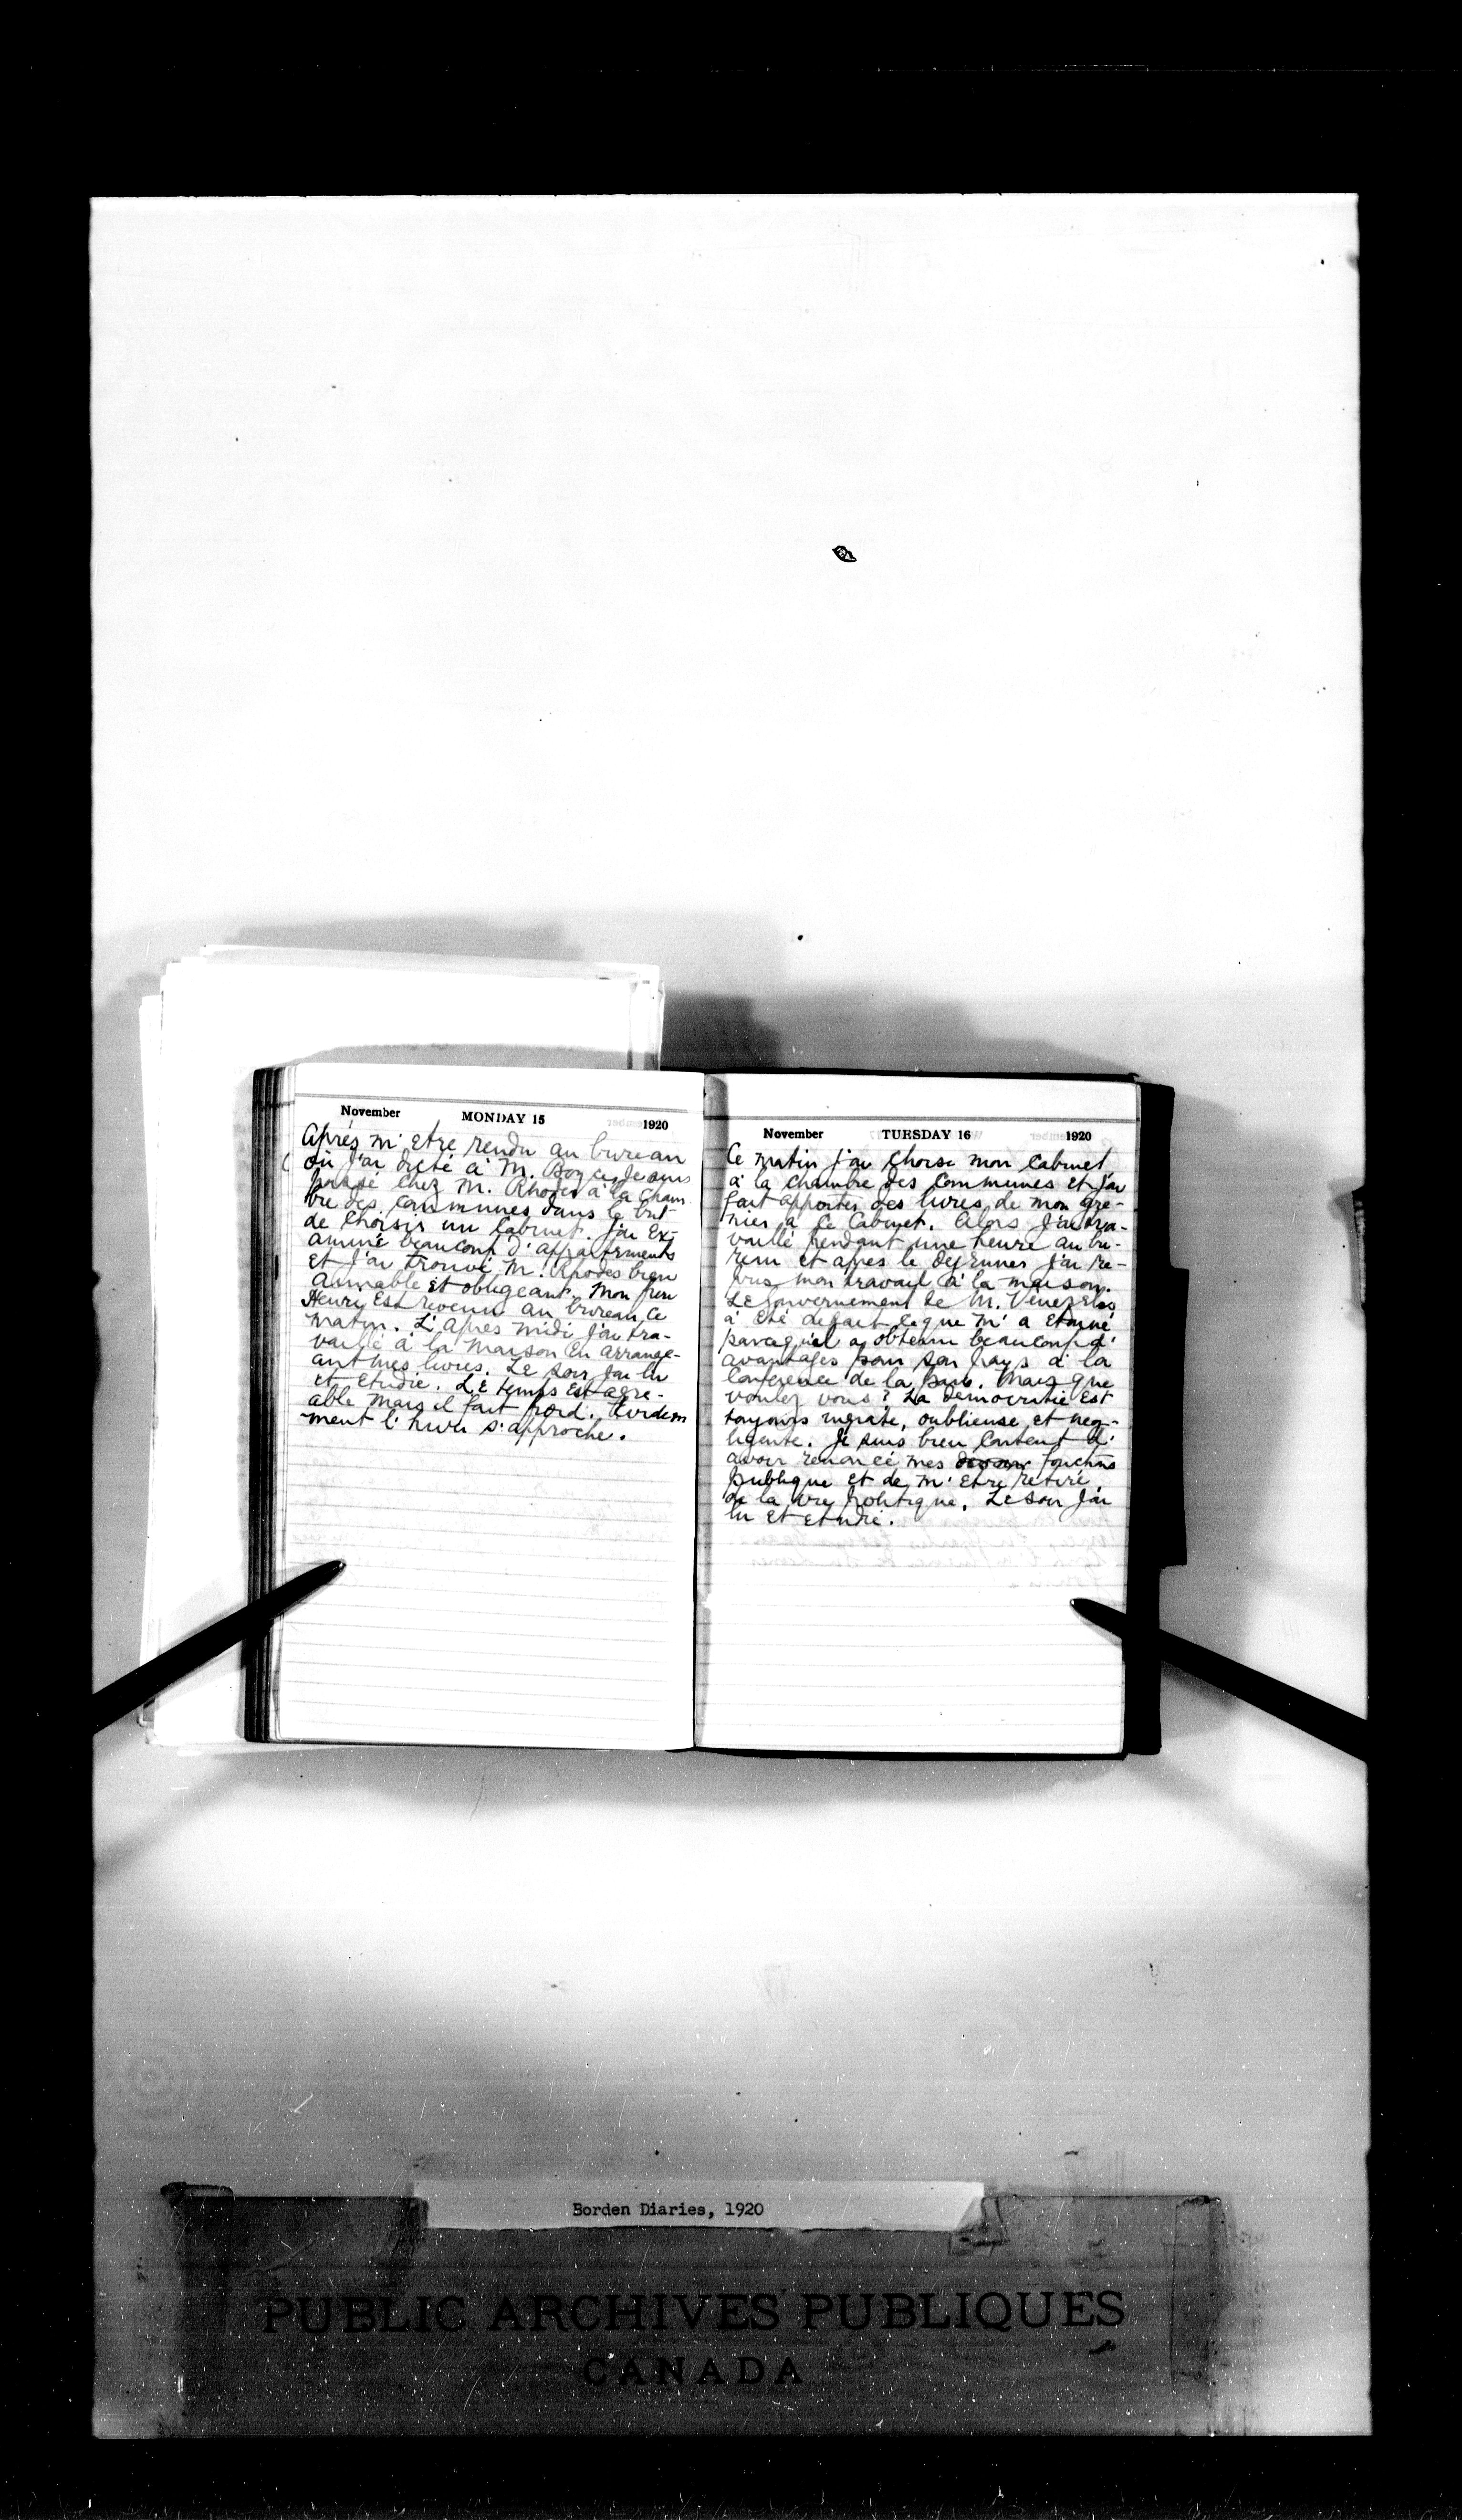 November MONDAY 15 1920
Après m'etre rendu au bureau
où j'ai dicté à M. Boyce, Je suis
passé chez M. Rhodes à la Cham
bre des communes dans le but
de choisir un Cabinet. J'ai Ex-
aminé beaucoup d'appartements
et J'ai trouvé M. Rhodes bien
aimable et obligeant. Mon frere
Henri Est revenu au bureau ce
matin. L'apres midi j'ai tra-
vaillé à la maison En arrange-
ant mes livres. Le soir j'ai lu
et Etudié. Le temps Est agre-
able mais il fait froid. Evidem
ment l'hiver s'approche.
November TUESDAY 16 1920
Ce matin j'ai choisi mon Cabinet
à la chambre des Communes et j'ai
fait apporter des livres de mon gre-
nier à ce Cabinet. Alors J'ai tra-
vaillé pendant une heure au bu-
reau et apres le dejeuner j'ai re-
pris mon travail à la maison.
Le Gouvernement de M. Venezelos
à eté defait ce que m'a etonné
parcequ'il a obtenu beaucoup d'
avantages pour son pays à la
Conference de la paix. Mais que
voulez vous? La democratie Est
toujours ingrate, oublieuse et neg-
ligente. Je suis bien Content d'
avoir renoncé mes fonctions
publique et de m'Etre retiré
de la vie politique. Le soir J'ai
lu et Etudié.
Borden Diaries, 1920
PUBLIC ARCHIVES PUBLIQUES
CANADA